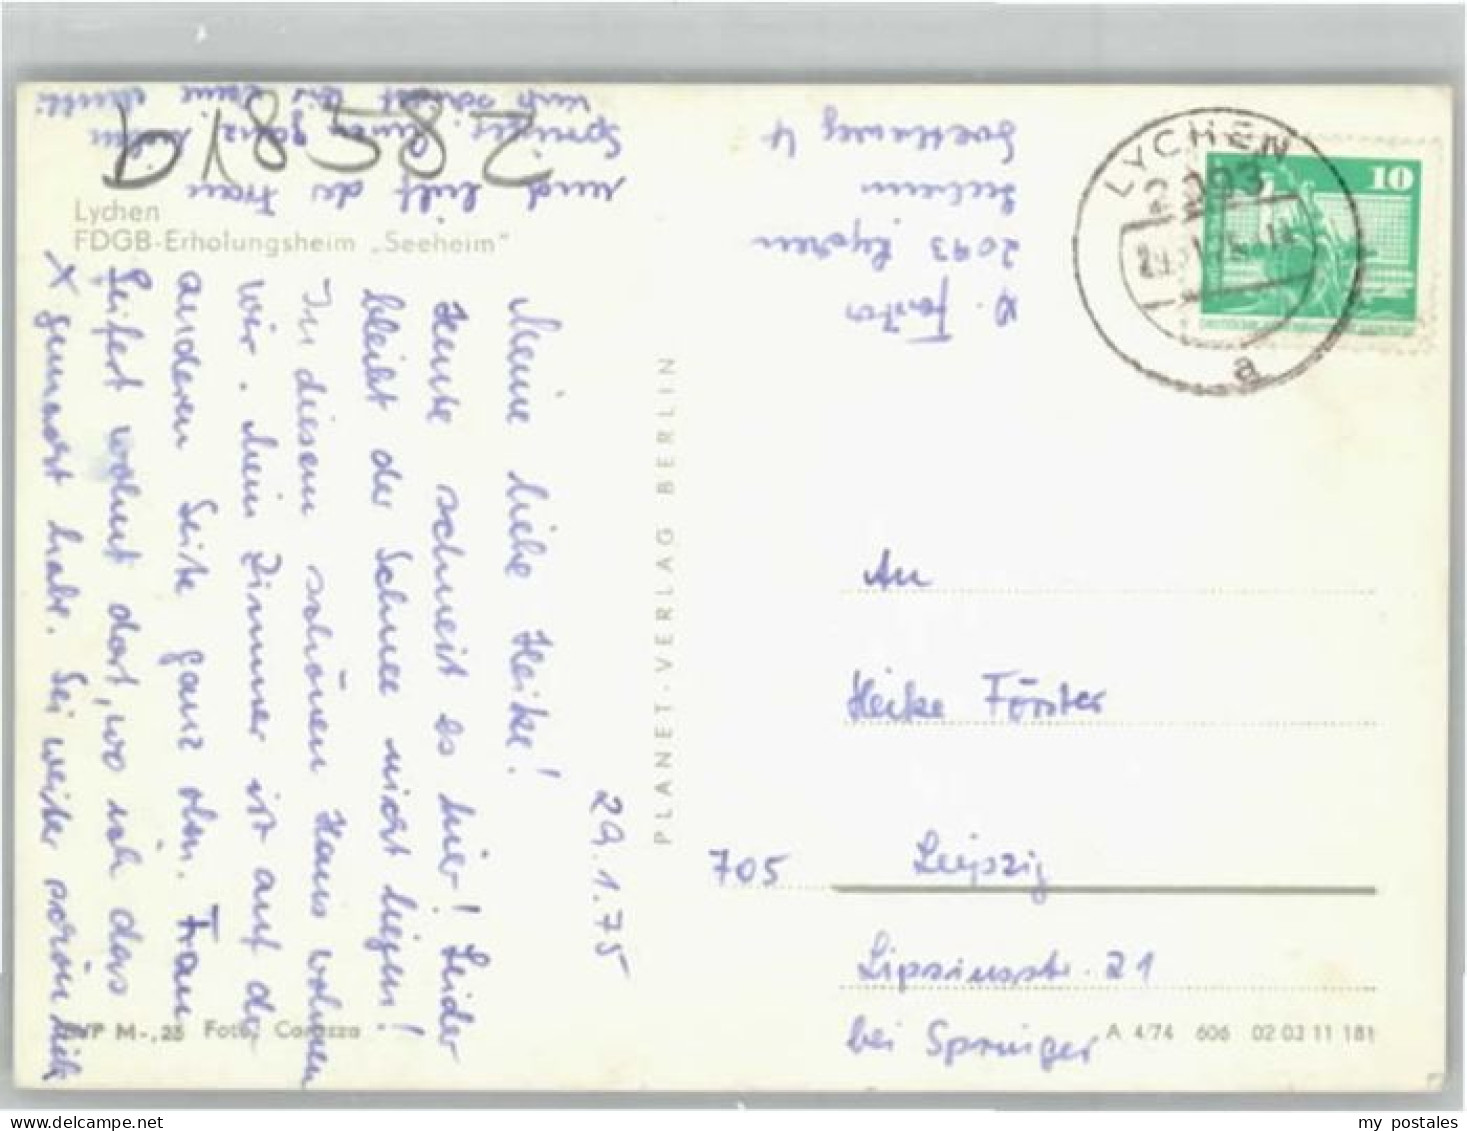 618582
Lychen
FDGB-Erholungsheim „Seeheim"
29.1.75
Meine liebe Heike!
Heute schneit es hier! Leider
bleibt der Schnee nicht liegen!
In diesem schönen Haus wohnen
wir. Mein Zimmer ist auf der
anderen Seite ganz oben. Frau
Seifert wohnt dort, wo ich das
x gemacht habe. Sei weiter schön lieb
und hilf der Frau
Spruiger. Einen ganz
PLANET-VERLAG BERLIN
2093 Lychen
Seeheim
LYCHEN
2093
a
10
An
Heike Förster
705 Leipzig
Lipsiusstr. 21
bei Spruiger
EVP M-,25 Foto,
A 4/74 606 02 03 11 181
my postales